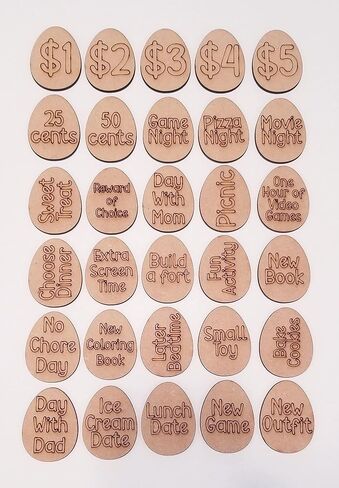 $1
$2
$3
$4
$5
25
cents
50
cents
Game
Night
Pizza
Night
Movie
Night
Sweet
Treat
Reward
of
Choice
Day
With
Mom
Picnic
One
Hour of
Video
Games
Choose
Dinner
Extra
Screen
Time
Build
a fort
Fun
Activity
New
Book
No
Chore
Day
New
Coloring
Book
Later
Bedtime
Small
Toy
Bake
Cookies
Day
With
Dad
Ice
Cream
Date
Lunch
Date
New
Game
New
Outfit